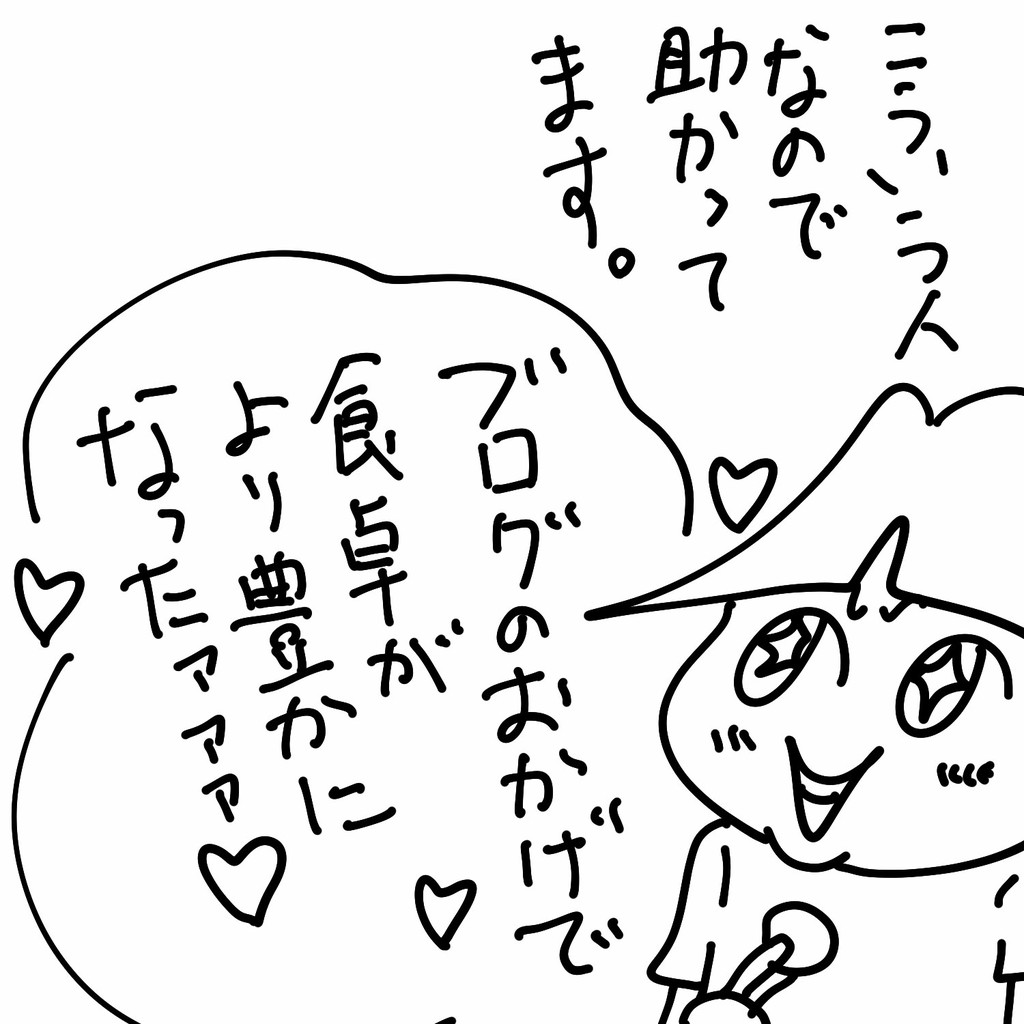 こういう人
なので
助かって
ます。
ブログのおかげで
食卓が
より豊かに
なったァァァ♡